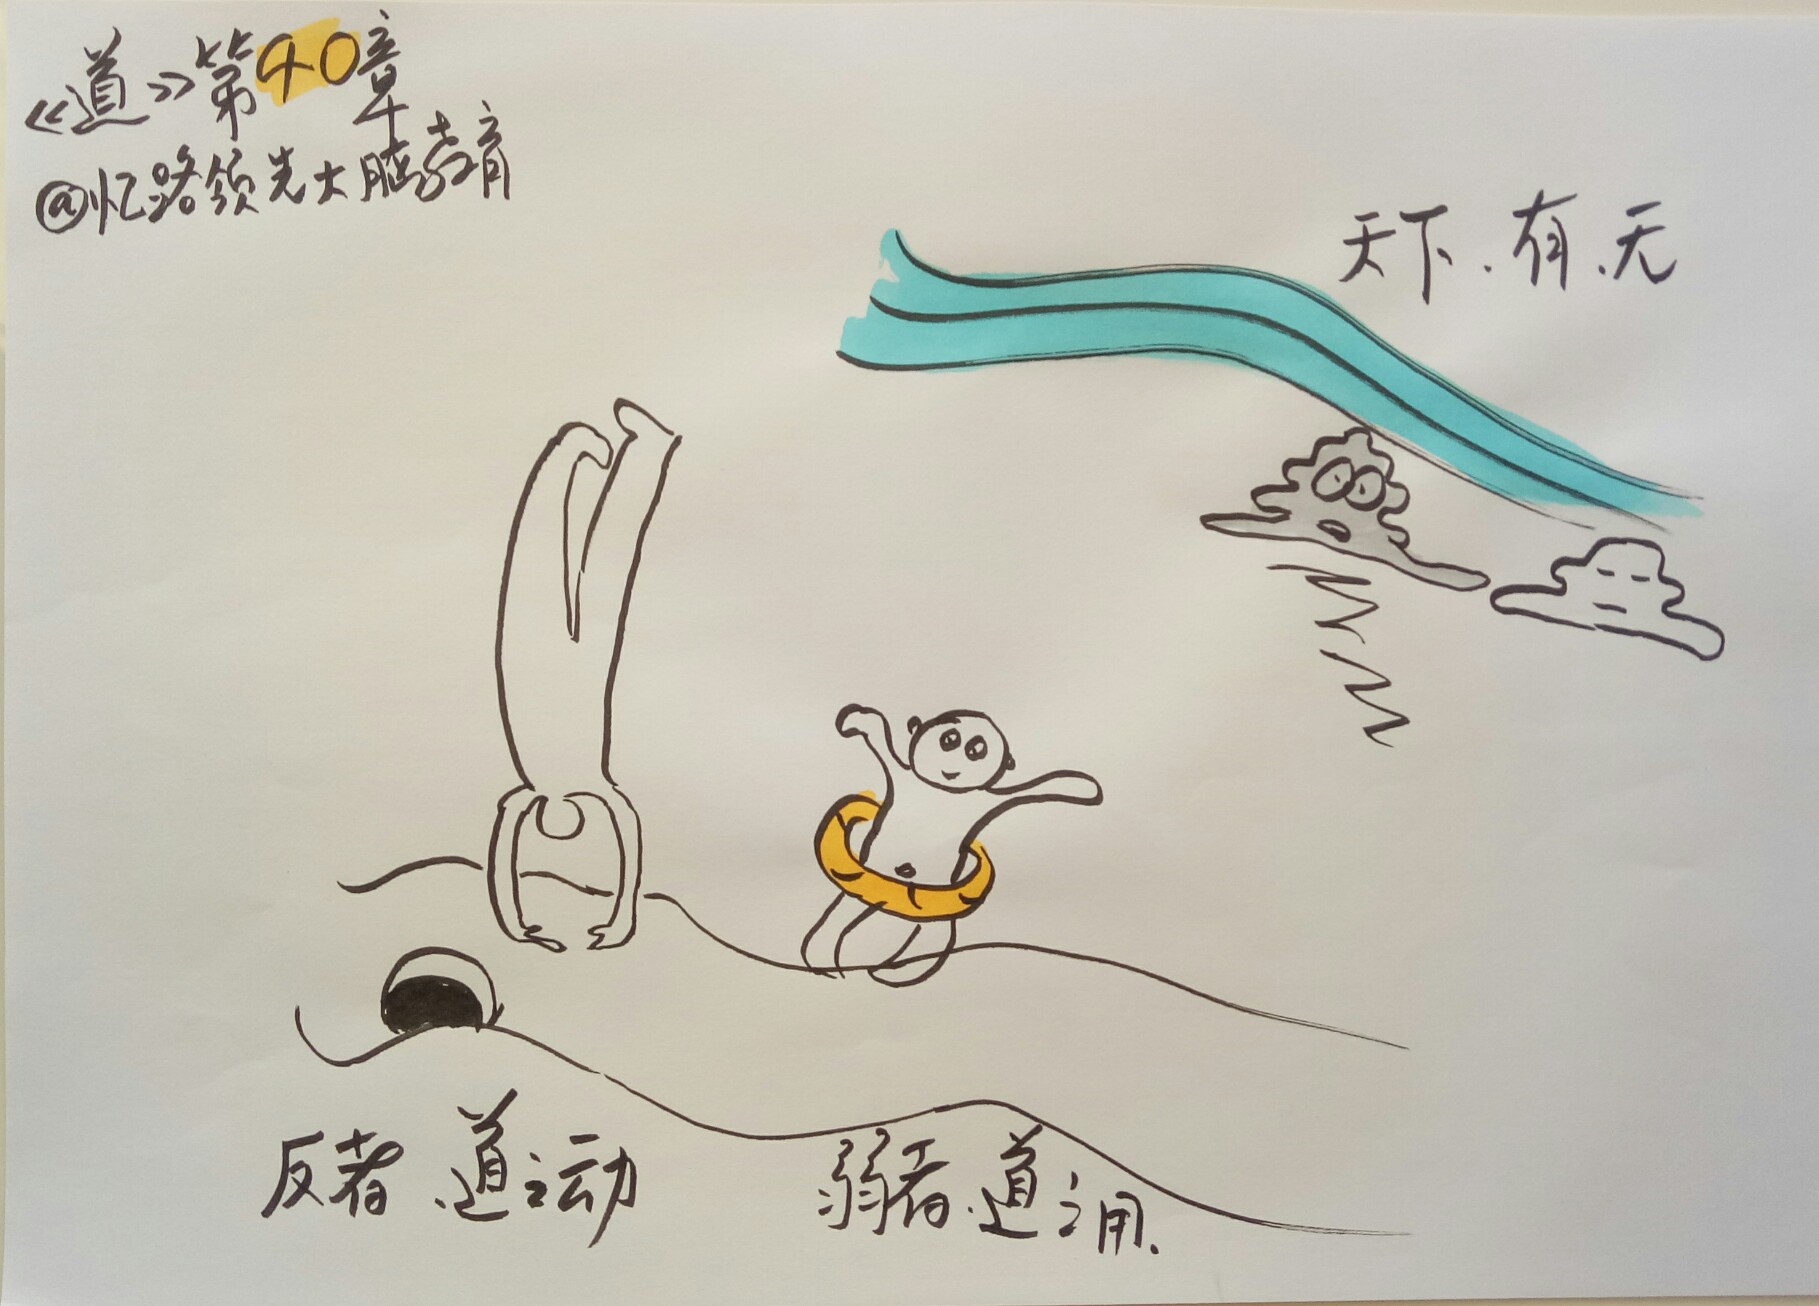 《道》第40章
@忆路领先大脑教育
天下、有、无
反者、道之动
弱者、道之用、